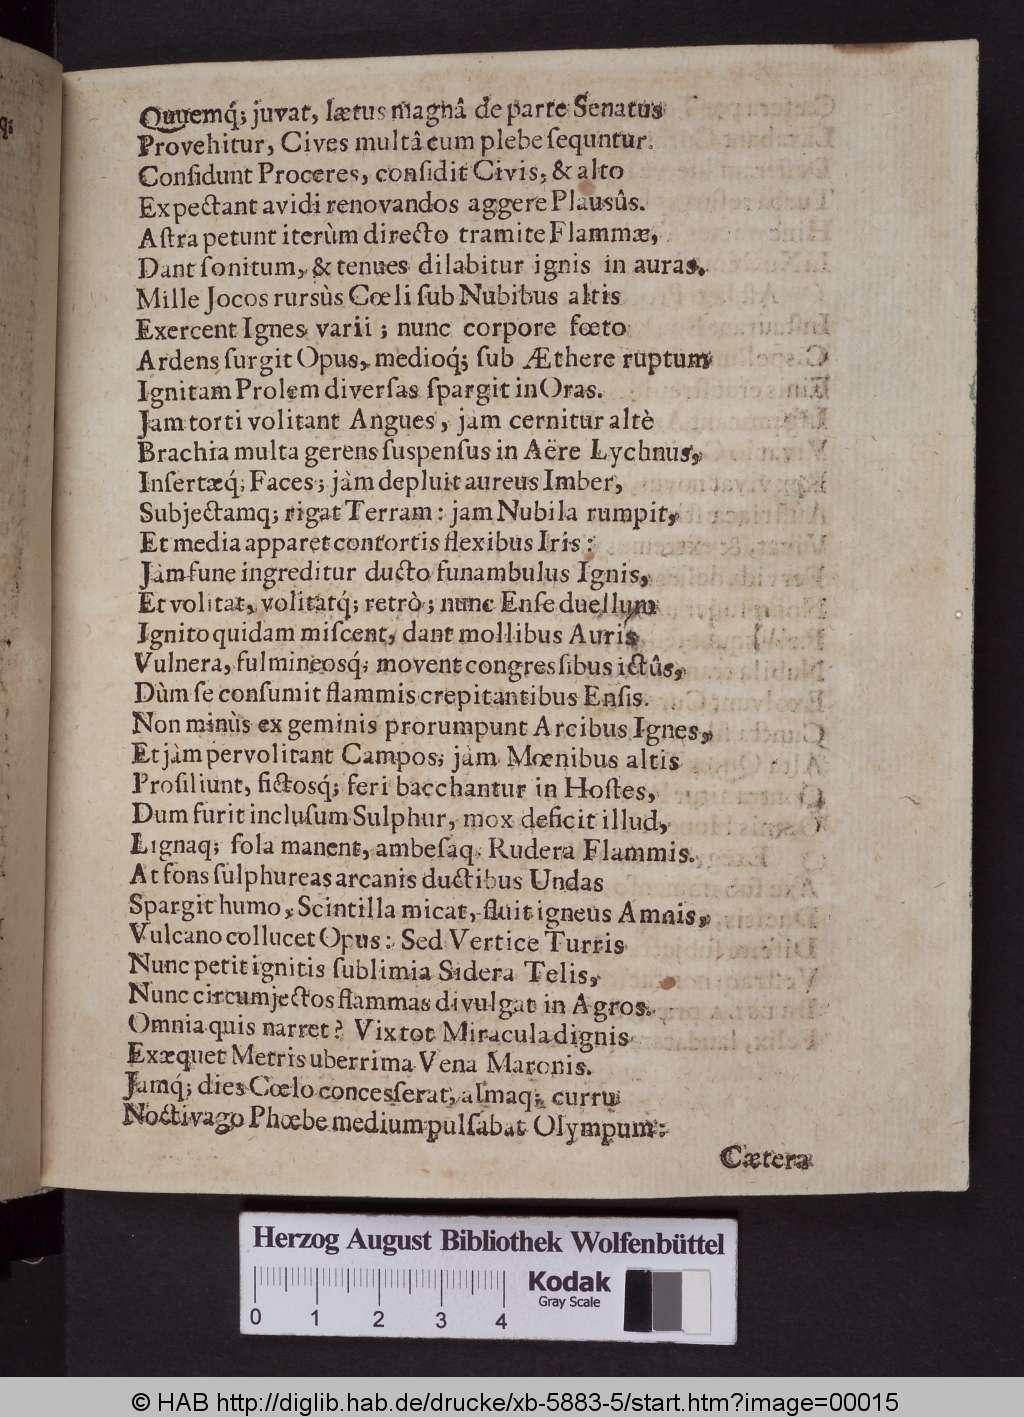 Quuemq́; juvat, lætus magnâ de parte Senatus
Provehitur, Cives multâ cum plebe ſequntur.
Conſidunt Proceres, conſidit Civis, & alto
Expectant avidi renovandos aggere Plausûs.
Aſtra petunt iterùm directo tramite Flammæ,
Dant ſonitum, & tenues dilabitur ignis in auras.
Mille Jocos rursùs Cœli ſub Nubibus altis
Exercent Ignes varii; nunc corpore fœto
Ardens ſurgit Opus, medioq́; ſub Æthere ruptum
Ignitam Prolem diverſas ſpargit in Oras.
Jam torti volitant Angues, jam cernitur altè
Brachia multa gerens ſuspenſus in Aëre Lychnus,
Inſertæq́; Faces; jàm depluit aureus Imber,
Subjectamq; rigat Terram: jam Nubila rumpit,
Et media apparet contortis flexibus Iris:
Jàm fune ingreditur ducto funambulus Ignis,
Et volitat, volitatq́; retrò; nunc Enſe duellum
Ignito quidam miſcent, dant mollibus Auris
Vulnera, fulmineosq́; movent congresſibus ictûs,
Dùm ſe conſumit flammis crepitantibus Enſis.
Non minùs ex geminis prorumpunt Arcibus Ignes,
Et jàm pervolitant Campos; jàm Mœnibus altis
Proſiliunt, fictosq́; feri bacchantur in Hoſtes,
Dum furit incluſum Sulphur, mox deficit illud,
Lignaq; ſola manent, ambeſaq; Rudera Flammis.
At fons ſulphureas arcanis ductibus Undas
Spargit humo, Scintilla micat, fluit igneus Amnis,
Vulcano collucet Opus: Sed Vertice Turris
Nunc petit ignitis ſublimia Sidera Telis,
Nunc circumjectos flammas divulgat in Agros.
Omnia quis narret? Vix tot Miracula dignis
Exæquet Metris uberrima Vena Maronis.
Jamq́; dies Cœlo concesſerat, almaq; curru
Noctivago Phœbe medium pulſabat Olympum:
Cætera
Herzog August Bibliothek Wolfenbüttel
Kodak
Gray Scale
0 1 2 3 4
© HAB http://diglib.hab.de/drucke/xb-5883-5/start.htm?image=00015